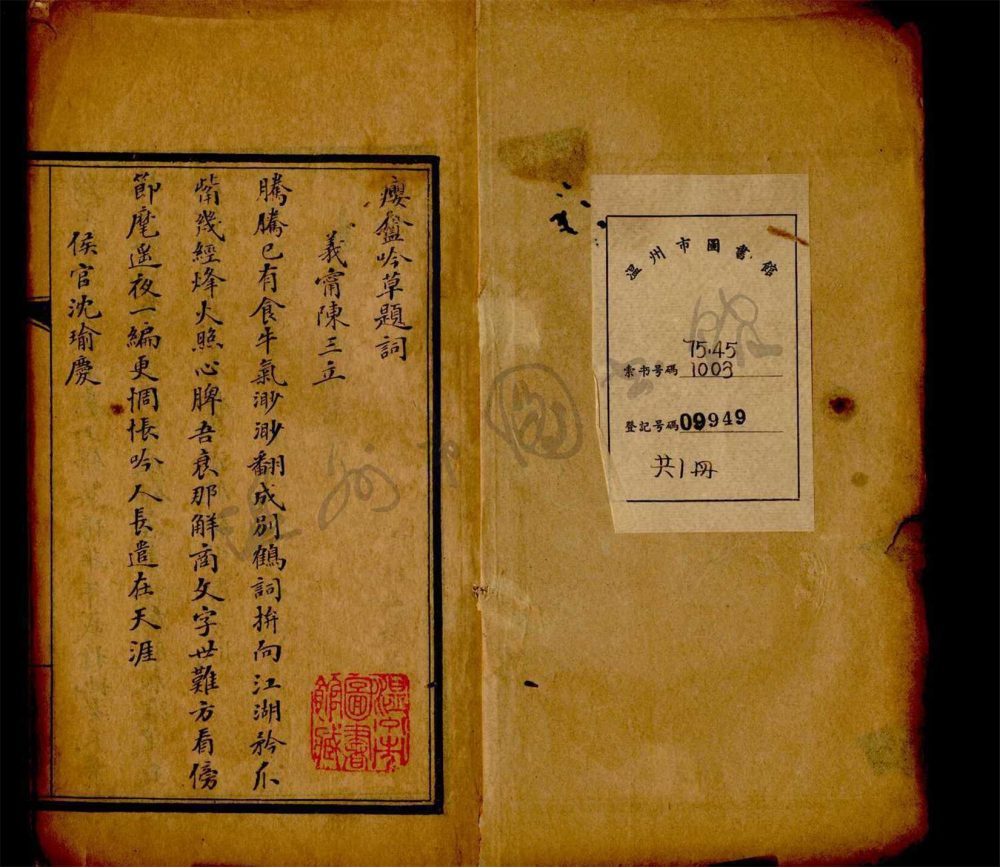 溫州市圖書館
索书号碼 75.45
1003
登記号碼 09949
共1冊
癭盦吟草題詞
義甯陳三立
騰騰已有食牛氣渺渺翻成別鶴詞拚向江湖矜爪
觜幾經烽火照心脾吾衰那解商文字世難方看傍
節麾遥夜一編更惆悵吟人長遣在天涯
侯官沈瑜慶
温州市
圖書
館藏